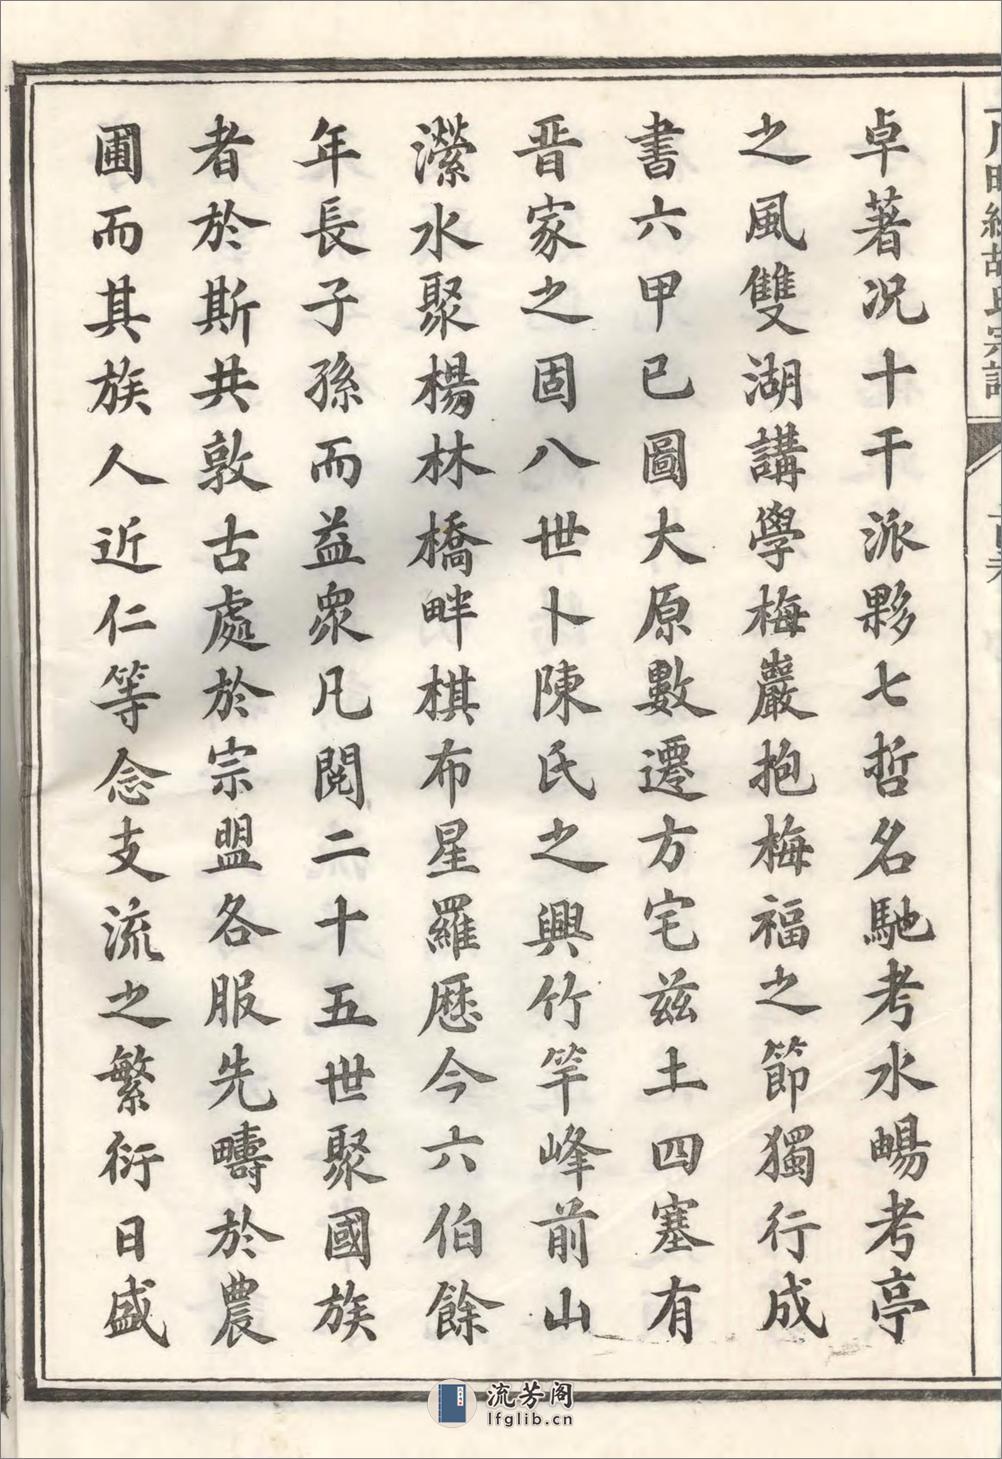 明經胡氏宗譜
卓著况十干派夥七哲名馳考水暢考亭
之風雙湖講學梅巖抱梅福之節獨行成
書六甲已圖大原數遷方宅兹土四塞有
晋家之固八世卜陳氏之興竹竿峰前山
瀠水聚楊林橋畔棋布星羅歷今六伯餘
年長子孫而益衆凡閱二十五世聚國族
者於斯共敦古處於宗盟各服先疇於農
圃而其族人近仁等念支流之繁衍日盛
流芳阁
lfglib.cn